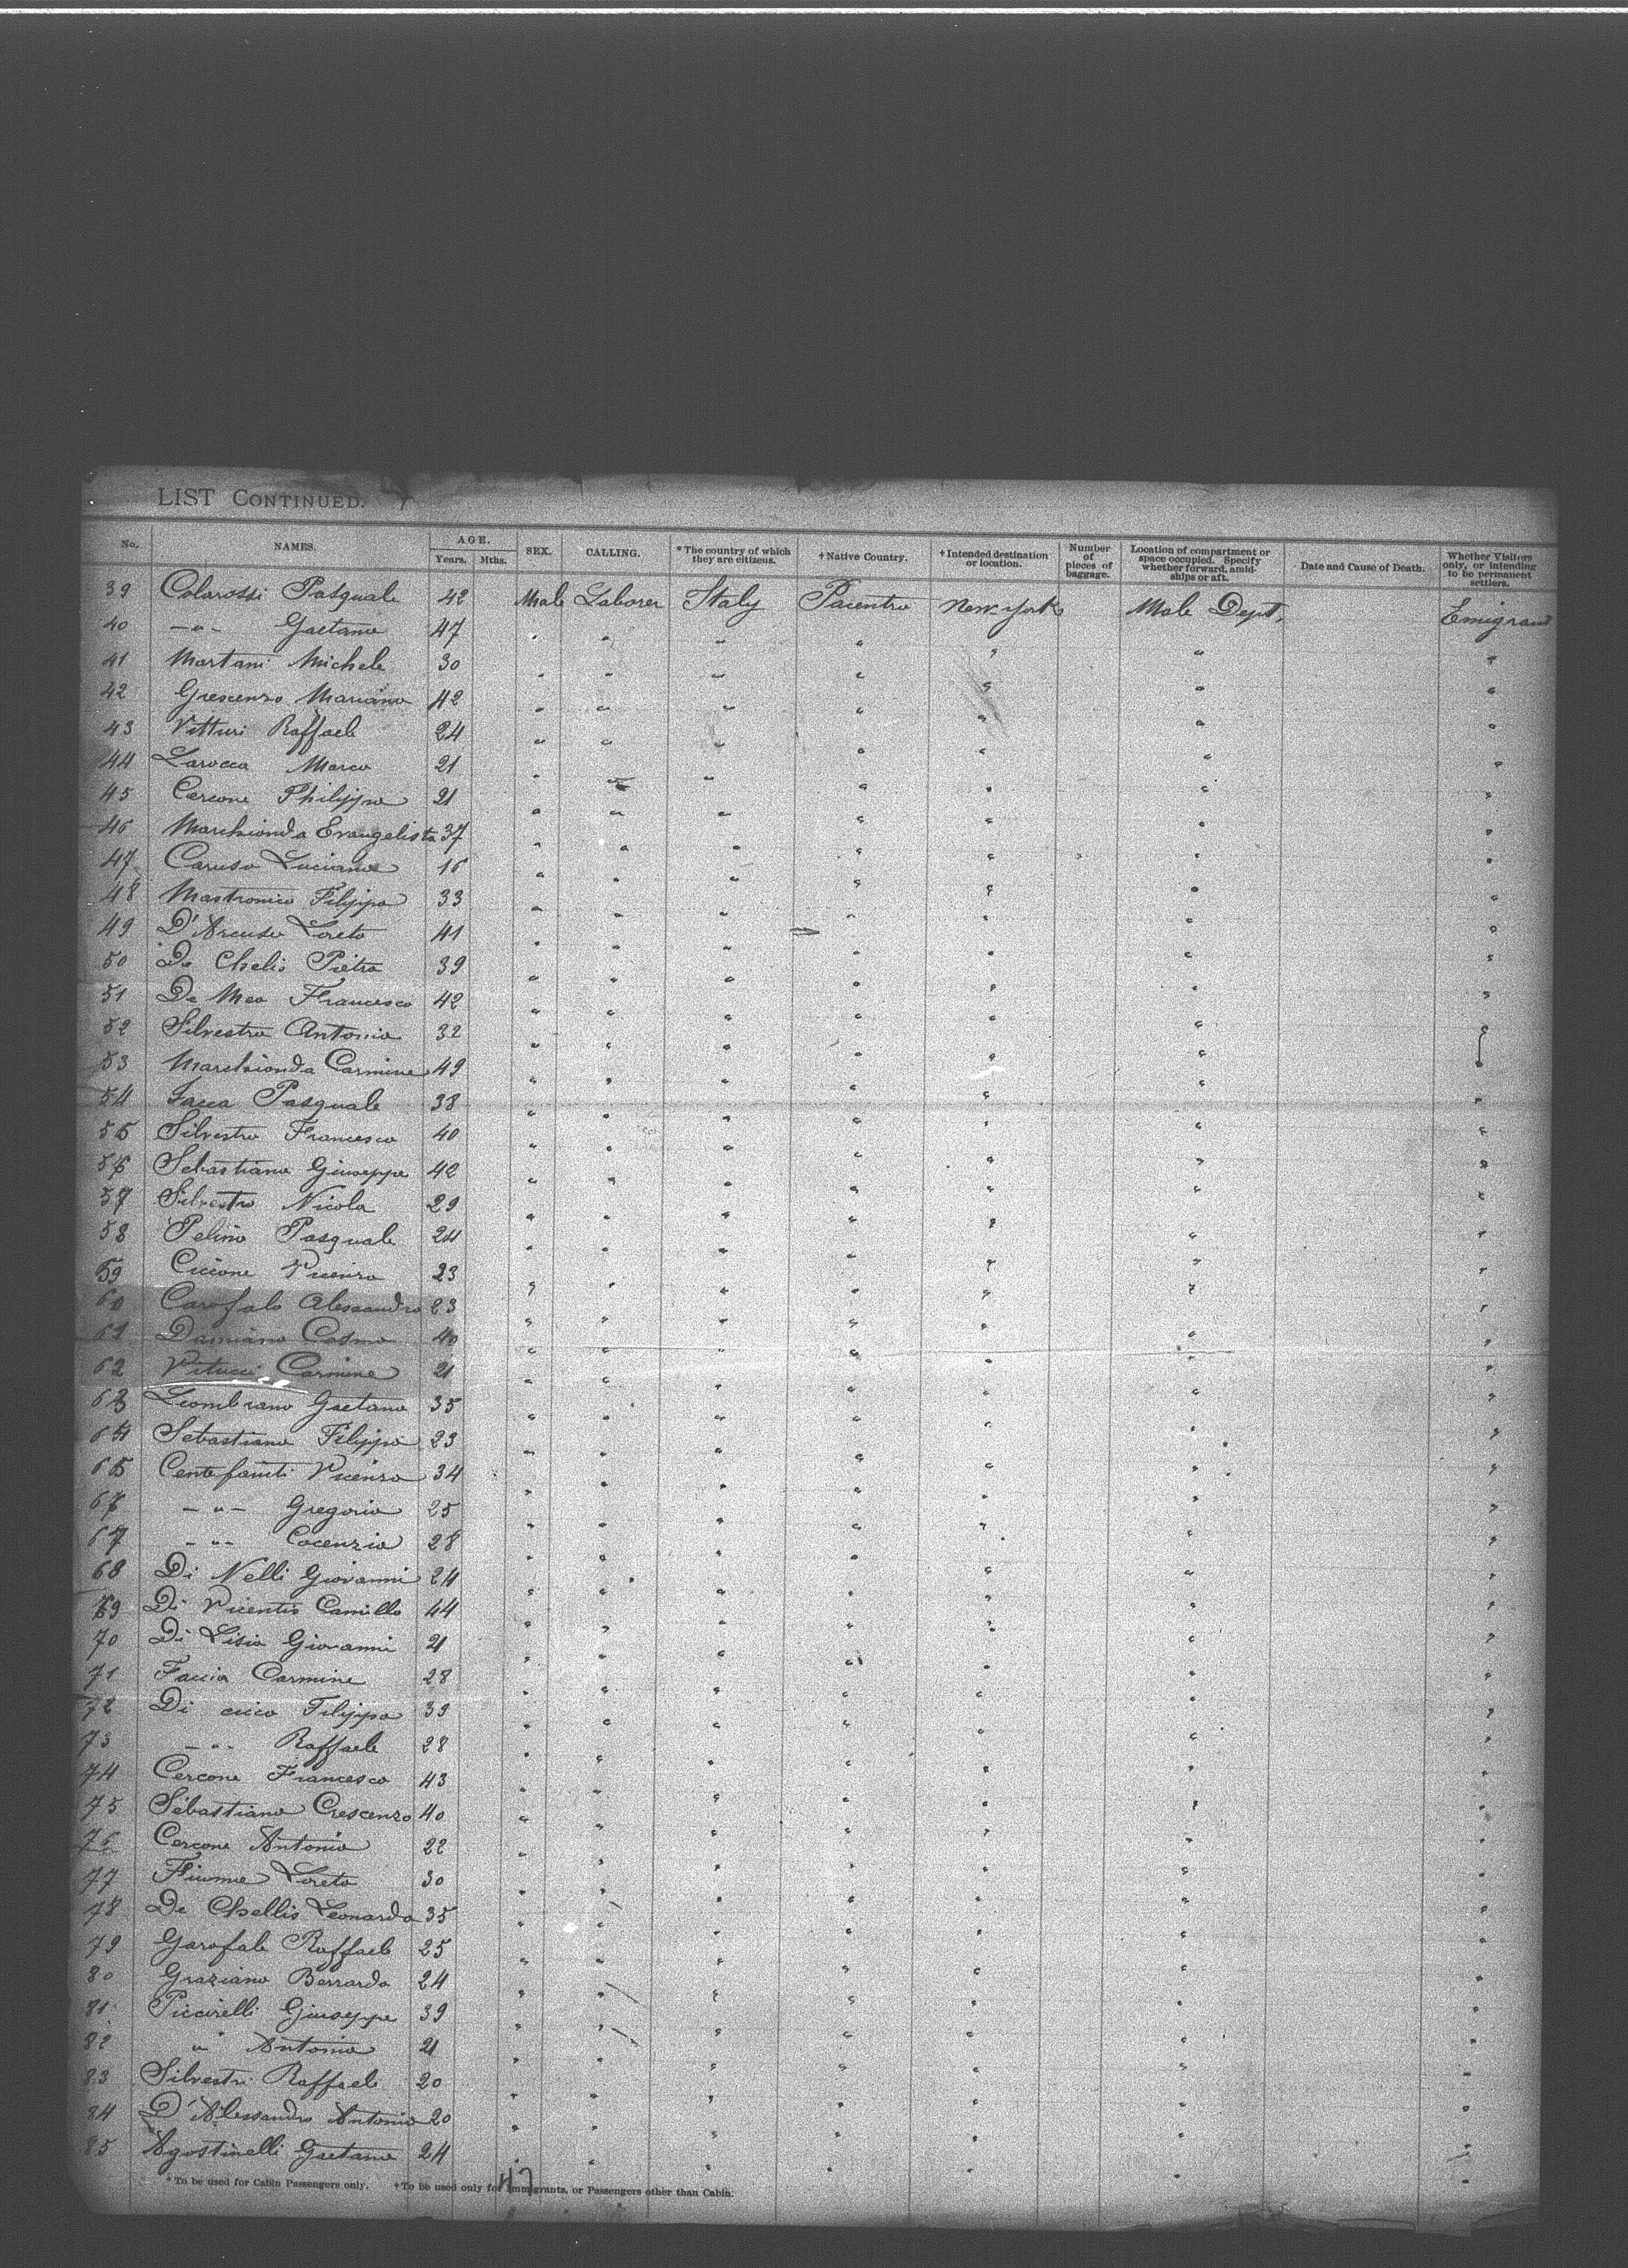 LIST CONTINUED.
No. NAMES. AGE. Years. Mths. SEX. CALLING. *The country of which they are citizens. †Native Country. †Intended destination or location. Number of pieces of baggage. Location of compartment or space occupied. Specify whether forward, amidships or aft. Date and Cause of Death. Whether Visitors only, or intending to be permanent settlers.
39 Colarossi Pasquale 42 Male Laborer Italy Pacentro New York Male Dept. Emigrant
40 —"— Gaetano 47
41 Martani Michele 30
42 Grescenzo Mariano 42
43 Vitturi Raffaele 24
44 Larocca Marco 21
45 Cercone Philippo 21
46 Marchionda Evangelista 37
47 Caruso Luciano 16
48 Mastronico Filippo 33
49 D'Arcuso Loreto 41
50 De Chelis Pietro 39
51 De Meo Francesco 42
52 Silvestro Antonio 32
53 Marchionda Carmine 49
54 Pasquale 38
55 Silvestro Francesco 40
56 Sebastiano Giuseppe 42
57 Silvestro Nicola 29
58 Pelino Pasquale 24
59 Ciccone Vicenzo 23
60 Carofalo Alessandro 23
61 Damiano Cosmo 40
62 Vitucci Carmine 21
63 Liombrano Gaetano 35
64 Sebastiano Filippo 23
65 Centefanti Vicenzo 34
67 —"— Gregorio 25
67 —"— Cocenzio 28
68 Di Nelli Giovanni 24
69 Di Vicentis Camillo 44
70 Di Lisio Giovanni 21
71 Faccia Carmine 28
72 Di cicco Filippo 39
73 —"— Raffaele 28
74 Cercone Francesco 43
75 Sebastiano Crescenzo 40
76 Cercone Antonio 22
77 Fiume Loreto 30
78 De Chellis Leonardo 35
79 Garofalo Raffaele 25
80 Graziano Berrardo 24
81 Piccirelli Giuseppe 39
82 " Antonio 21
83 Silvestri Raffaele 20
84 D'Alessandro Antonio 20
85 Agostinelli Gaetano 24
*To be used for Cabin Passengers only. †To be used only for Immigrants, or Passengers other than Cabin.
47